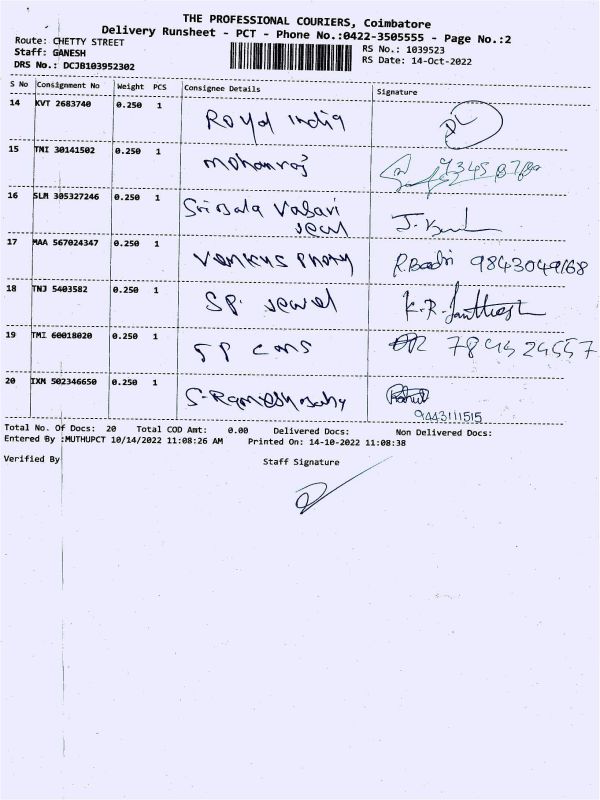 THE PROFESSIONAL COURIERS, Coimbatore
Delivery Runsheet - PCT - Phone No.:0422-3505555 - Page No.:2
Route: CHETTY STREET
RS No.: 1039523
Staff: GANESH
RS Date: 14-Oct-2022
DRS No.: DCJB103952302
S No Consignment No Weight PCS Consignee Details Signature
14 KVT 2683740 0.250 1 Royal India
15 TMI 30141502 0.250 1 mohanraj
16 SLM 305327246 0.250 1 Sri Bala
17 MAA 567024347 0.250 1 Venkys Photy R.Badri 9843049168
18 TNJ 5403582 0.250 1 SP. Jewel K.R.
19 TMI 60018020 0.250 1 SP cans
20 IXM 502346650 0.250 1 Rahul
9443111515
Total No. Of Docs: 20 Total COD Amt: 0.00 Delivered Docs: Non Delivered Docs:
Entered By :MUTHUPCT 10/14/2022 11:08:26 AM Printed On: 14-10-2022 11:08:38
Verified By Staff Signature